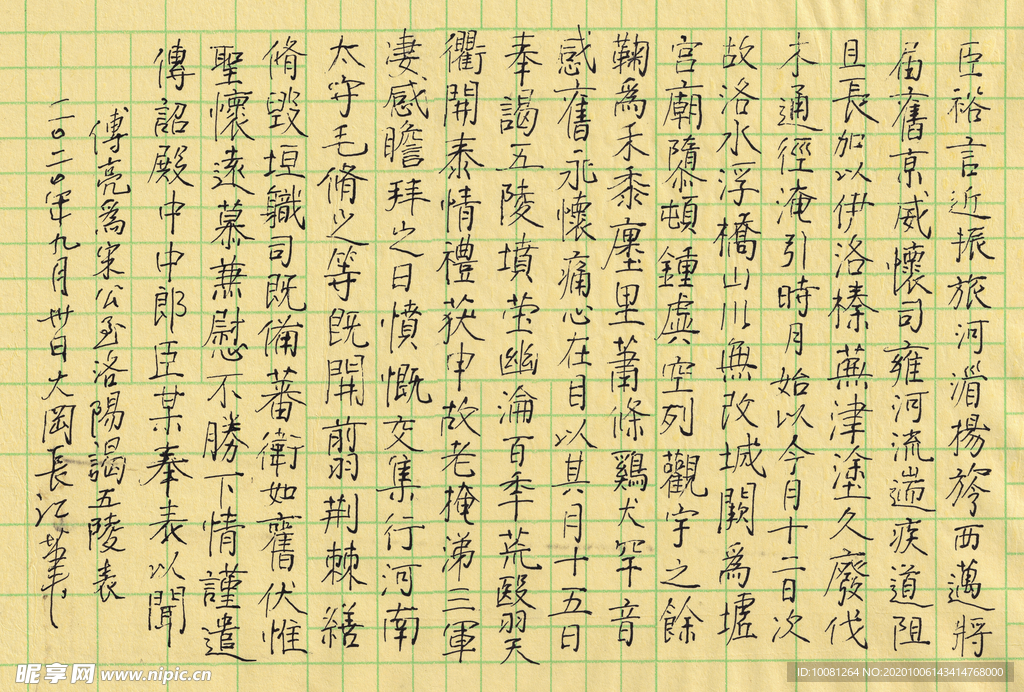 臣裕言近振旅河湄揚旍西邁將
屆舊京威懷司雍河流遄疾道阻
且長加以伊洛榛蕪津塗久廢伐
木通徑淹引時月始以今月十二日次
故洛水浮橋山川無改城闕為墟
宮廟隳頓鍾虡空列觀宇之餘
鞠為禾黍廛里蕭條鷄犬罕音
感舊永懷痛心在目以其月十五日
奉謁五陵墳塋幽淪百年荒翳天
衢開泰情禮获申故老掩涕三軍
凄感瞻拜之日憤慨交集行河南
太守毛脩之等既開翦荆棘繕
脩毁垣職司既備蕃衛如舊伏惟
聖懷遠慕兼慰不勝下情謹遣
傳詔殿中中郎臣某奉表以聞
傅亮為宋公至洛陽謁五陵表
二〇二〇年九月卅日大岡長江筆
昵享网 www.nipic.cn
ID:10081264 NO:20201006143414768000